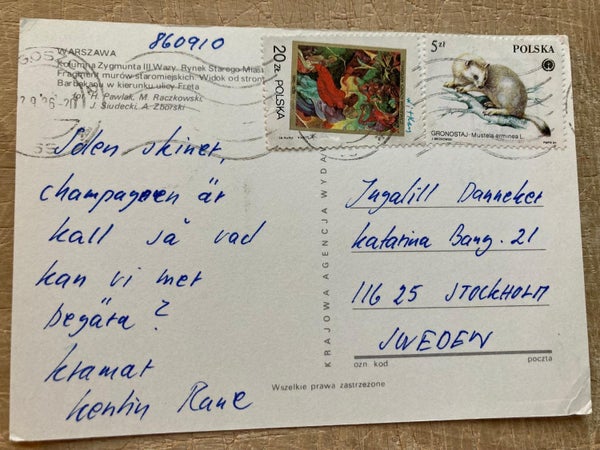 860910
WARSZAWA
Kolumna Zygmunta III Wazy. Rynek Starego Miasta
Fragment murów staromiejskich. Widok od strony
Barbakanu w kierunku ulicy Freta
fot. H. Pawlak, M. Raczkowski,
J. Siudecki, A. Zborski
20 ZŁ POLSKA
5zł POLSKA
GRONOSTAJ - Mustela erminea L.
Solen skiner,
champagnen är
kall så vad
kan vi mer
begära?
kramar
Rane
KRAJOWA AGENCJA WYDA
Ingalill Danneker
Katarina Bang. 21
116 25 STOCKHOLM
SWEDEN
ozn. kod poczta
Wszelkie prawa zastrzeżone